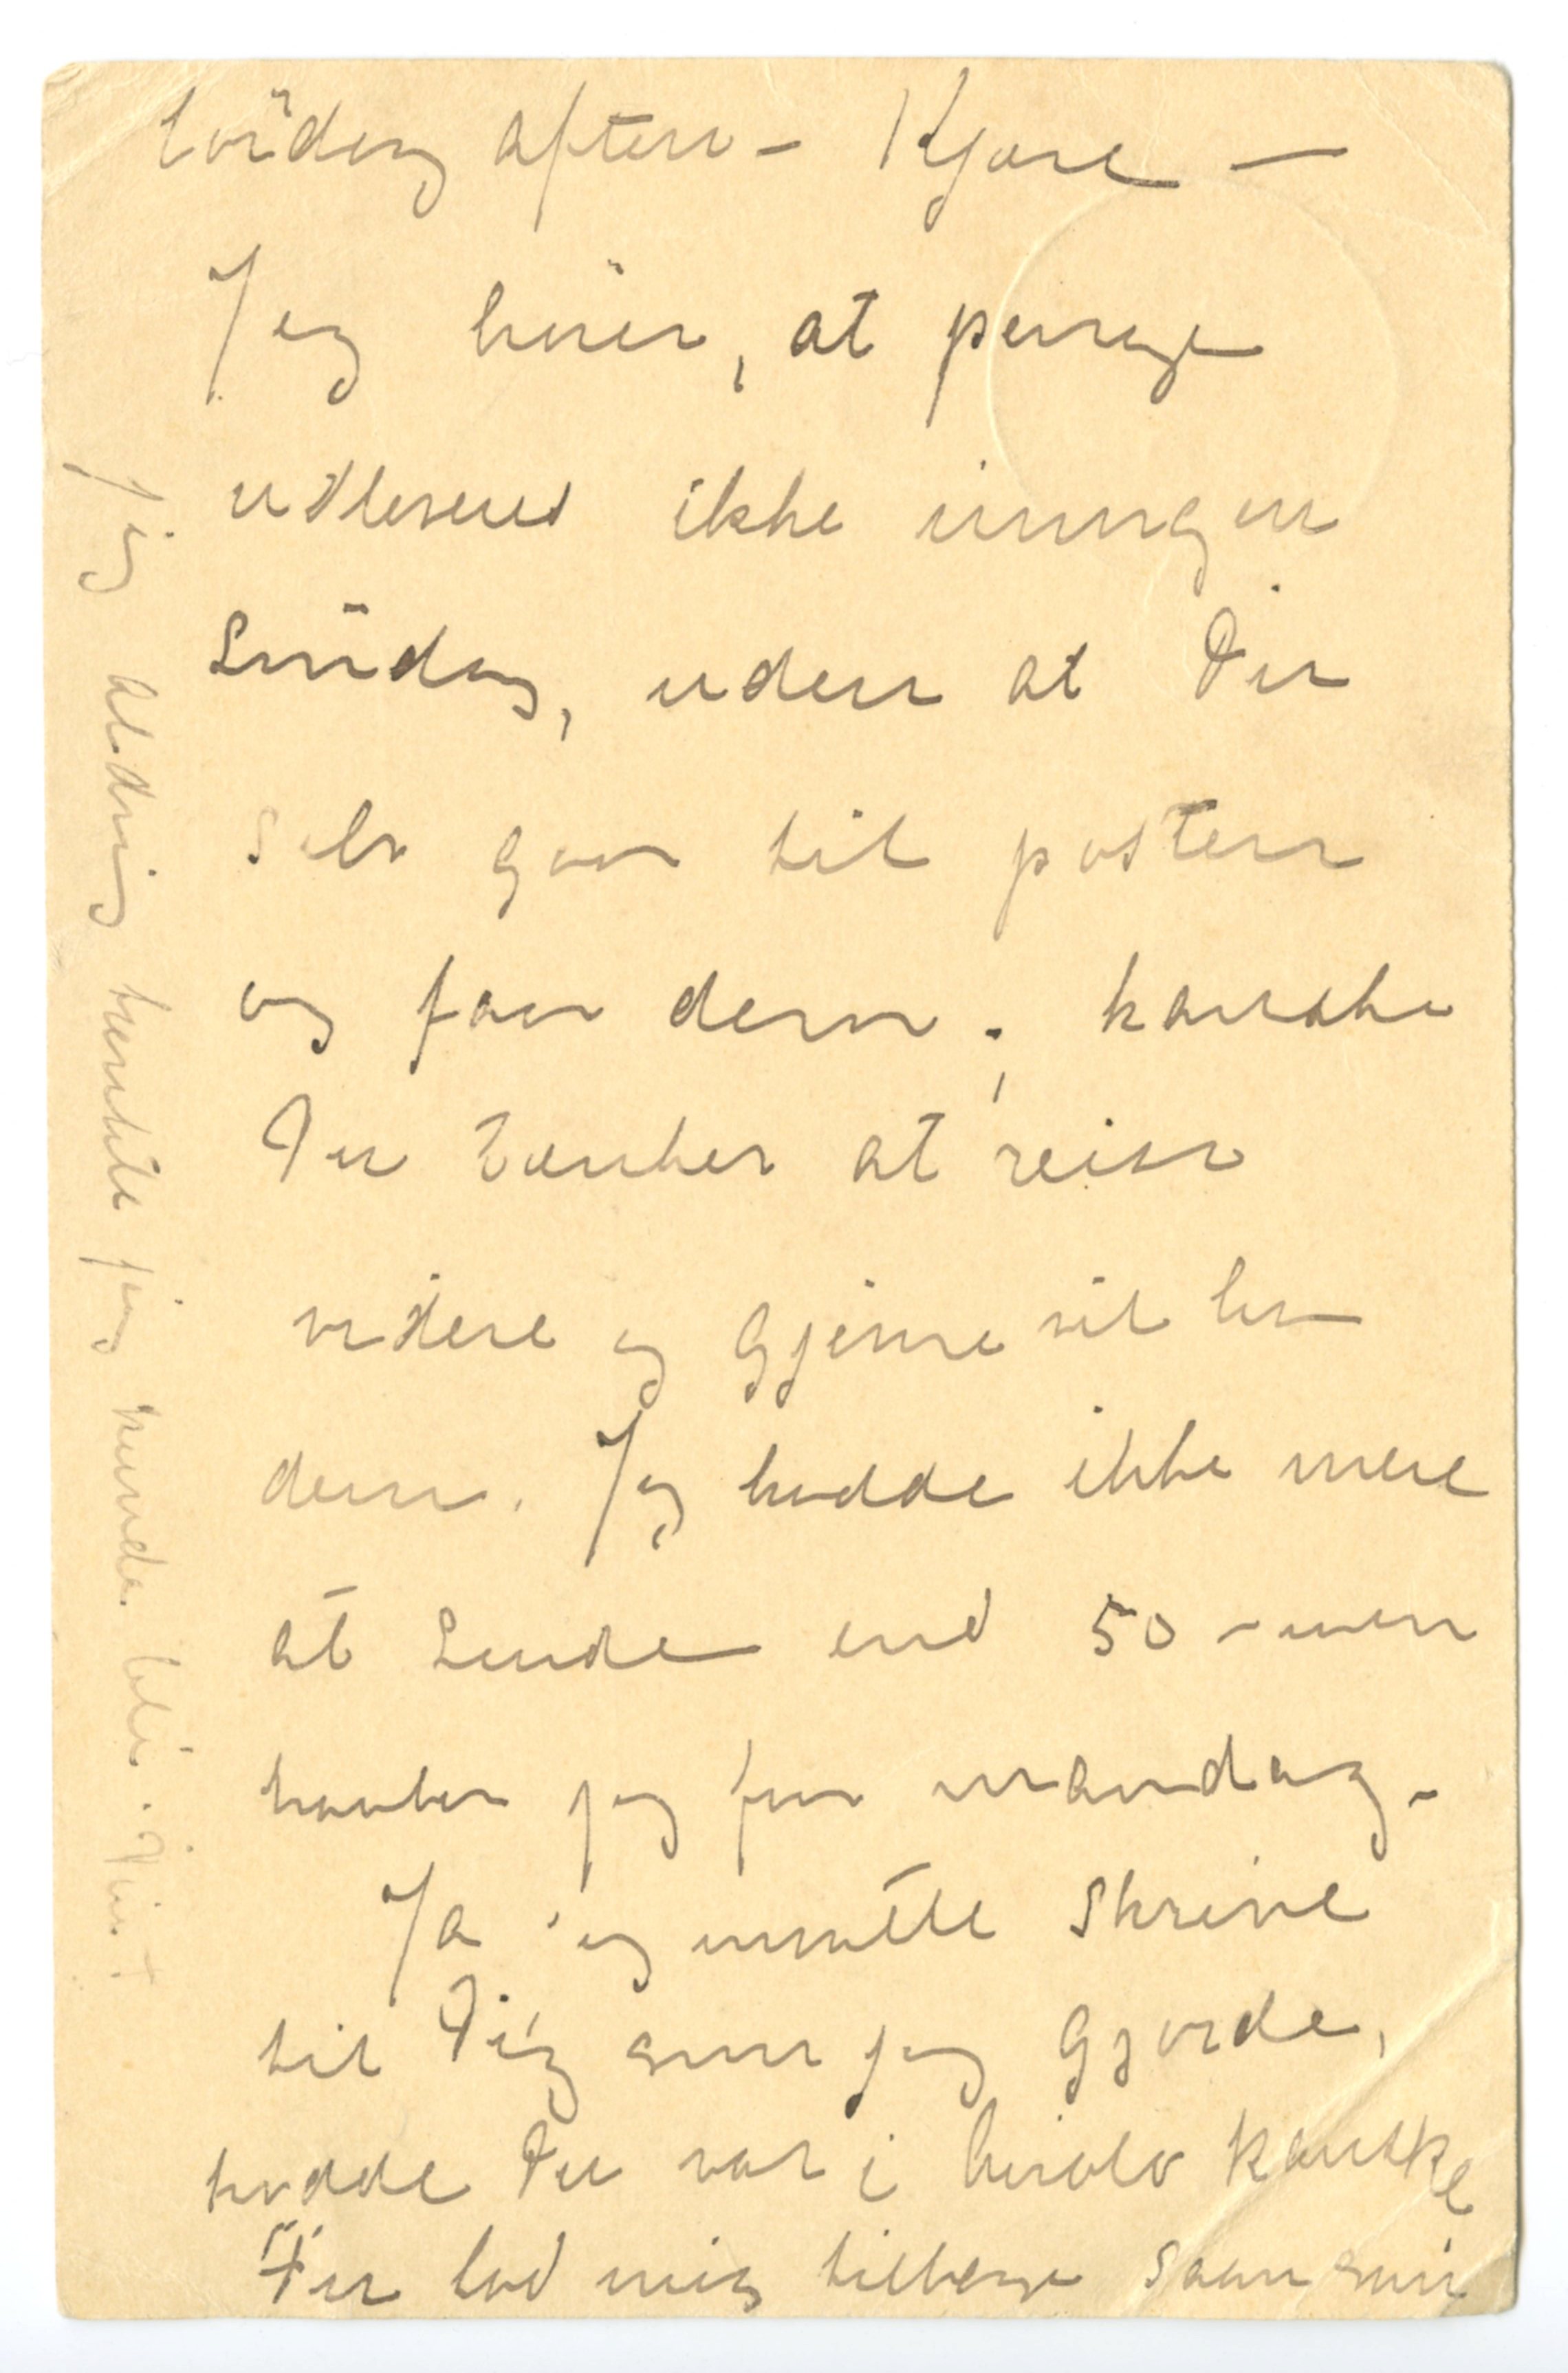 Lördag aften – Kjære –
Jeg hörer, at penge
udleveres ikke imorgen
Söndag, uden at Du
selv gaar til posten
og faar dem; kanske
Du tænker at reise
videre og gjerne vil ha
dem. Jeg hadde ikke mere
at sende end 50 – men
haaber jeg faar mandag –
Ja jeg maatte skrive
til Dig som jeg gjorde,
trodde Du var i kanske
Du lod mig tilbage saan som
jeg aldrig tænkte jeg kunde bli.